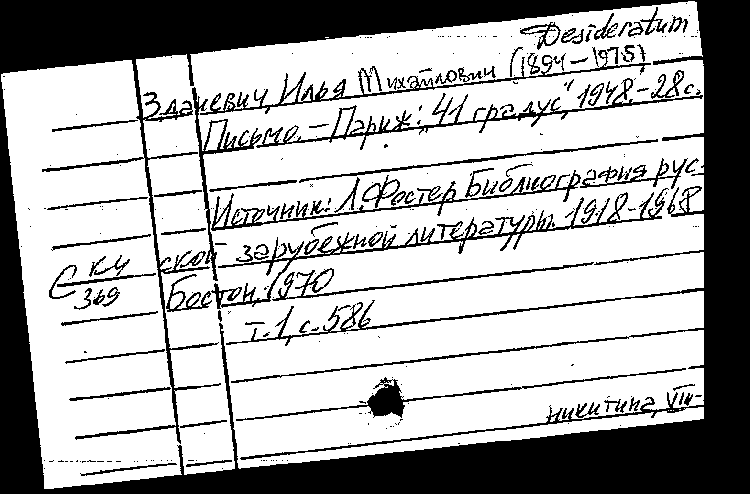 Desideratum
Зданевич, Илья Михайлович (1894–1975)
Письмо. – Париж: „41 градус“, 1948. – 28 с.
Источник: Л. Фостер Библиография рус-
ской зарубежной литературы. 1918-1968
Бостон, 1970
т. 1, с. 586
С КЧ
369
никитина, VIII-